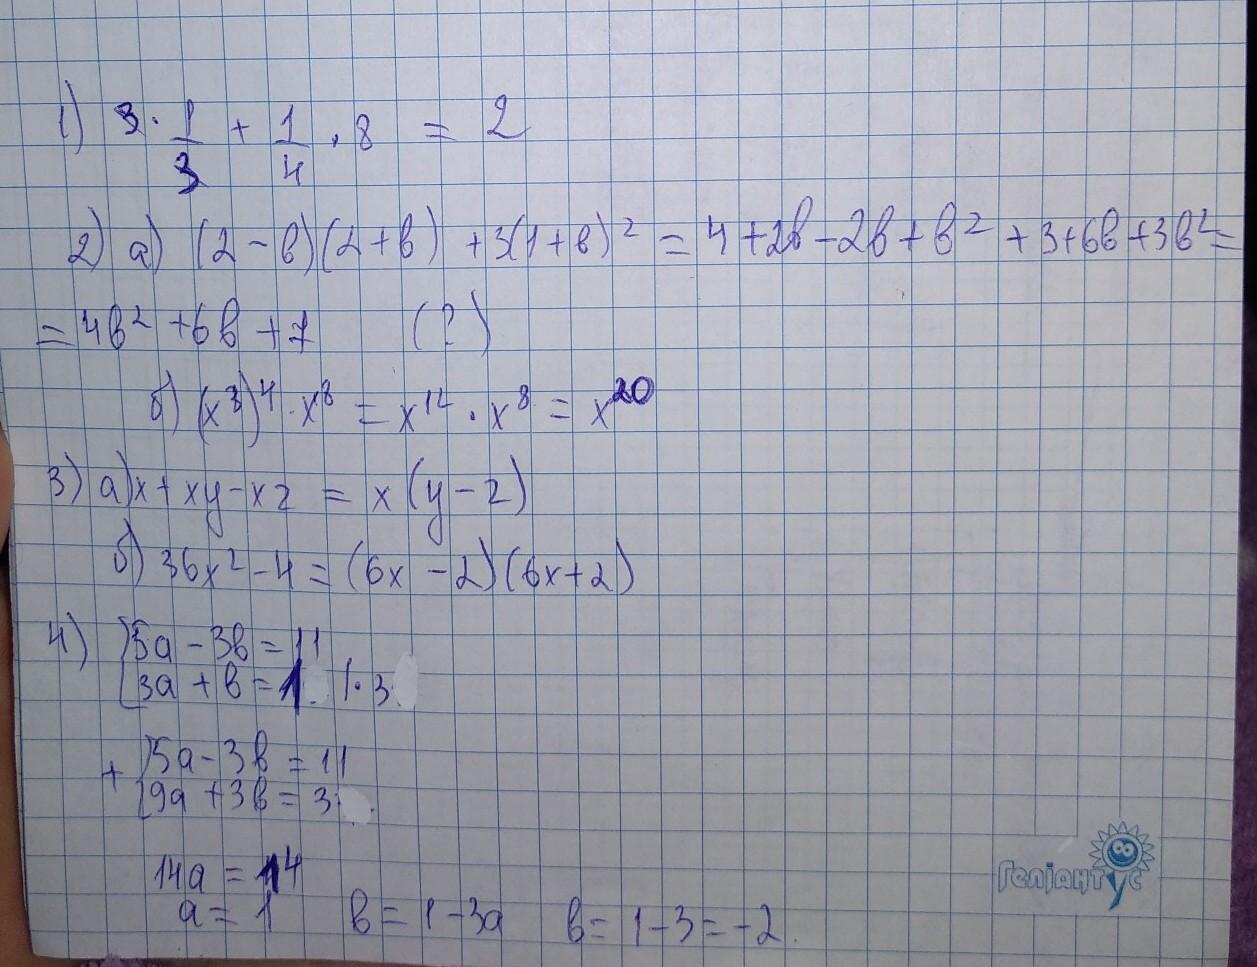 1) 3 · 1/3 + 1/4 · 8 = 2
2) а) (2 - b)(2 + b) + 3(1 + b)² = 4 + 2b - 2b + b² + 3 + 6b + 3b² =
= 4b² + 6b + 7 (?)
б) (x³)⁴ · x⁸ = x¹² · x⁸ = x²⁰
3) а) x + xy - xz = x(y - z)
б) 36x² - 4 = (6x - 2)(6x + 2)
4) { 5a - 3b = 11
{ 3a + b = 1 | · 3
+ { 5a - 3b = 11
{ 9a + 3b = 3
14a = 14
a = 1 b = 1 - 3a b = 1 - 3 = -2.
Геліантус